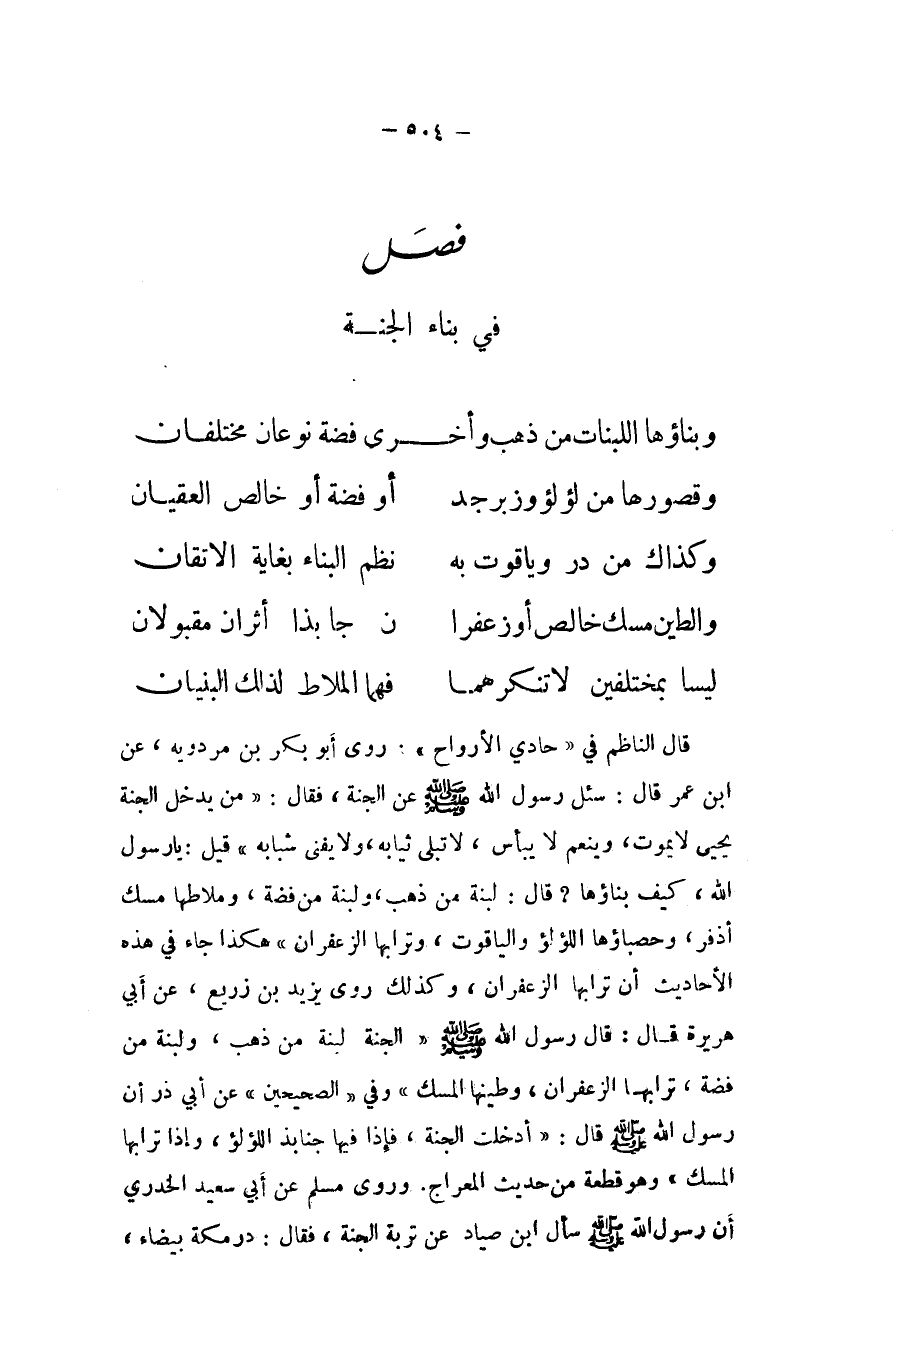 – ٥٠٤ –
فصَل
في بناء الجنـــة
وبناؤها اللبنات من ذهب وأخـــــرى فضة نوعان مختلفـــان
وقصورها من لؤلؤ وزبرجد أو فضة أو خالص العقيـان
وكذاك من در وياقوت به نظم البناء بغاية الاتقان
والطين مسك خالص أوزعفرا ن جا بذا أثران مقبولان
ليسا بمختلفين لاتنكرهمـا فهما الملاط لذاك البنيان
قال الناظم في « حادي الأرواح » : روى أبو بكر بن مردويه ، عن
ابن عمر قال : سئل رسول الله ﷺ عن الجنة ، فقال : « من يدخل الجنة
يحيى لايموت ، وينعم لا يبأس ، لاتبلى ثيابه ، ولايفنى شبابه » قيل : يارسول
الله ، كيف بناؤها ? قال : لبنة من ذهب ، ولبنة من فضة ، وملاطها مسك
أذفر ، وحصباؤها اللؤلؤ والياقوت ، وترابها الزعفران » هكذا جاء في هذه
الأحاديث أن ترابها الزعفران ، وكذلك روى يزيد بن زريع ، عن أبي
هريرة قـال : قال رسول الله ﷺ « الجنة لبنة من ذهب ، ولبنة من
فضة ، ترابهـا الزعفران ، وطينها المسك » وفي « الصحيحين » عن أبي ذر أن
رسول الله ﷺ قال : « أدخلت الجنة ، فإذا فيها جنابذ اللؤلؤ ، وإذا ترابها
المسك » وهو قطعة من حديث المعراج. وروى مسلم عن أبي سعيد الخدري
أن رسول الله ﷺ سأل ابن صياد عن تربة الجنة ، فقال : درمكة بيضاء ،